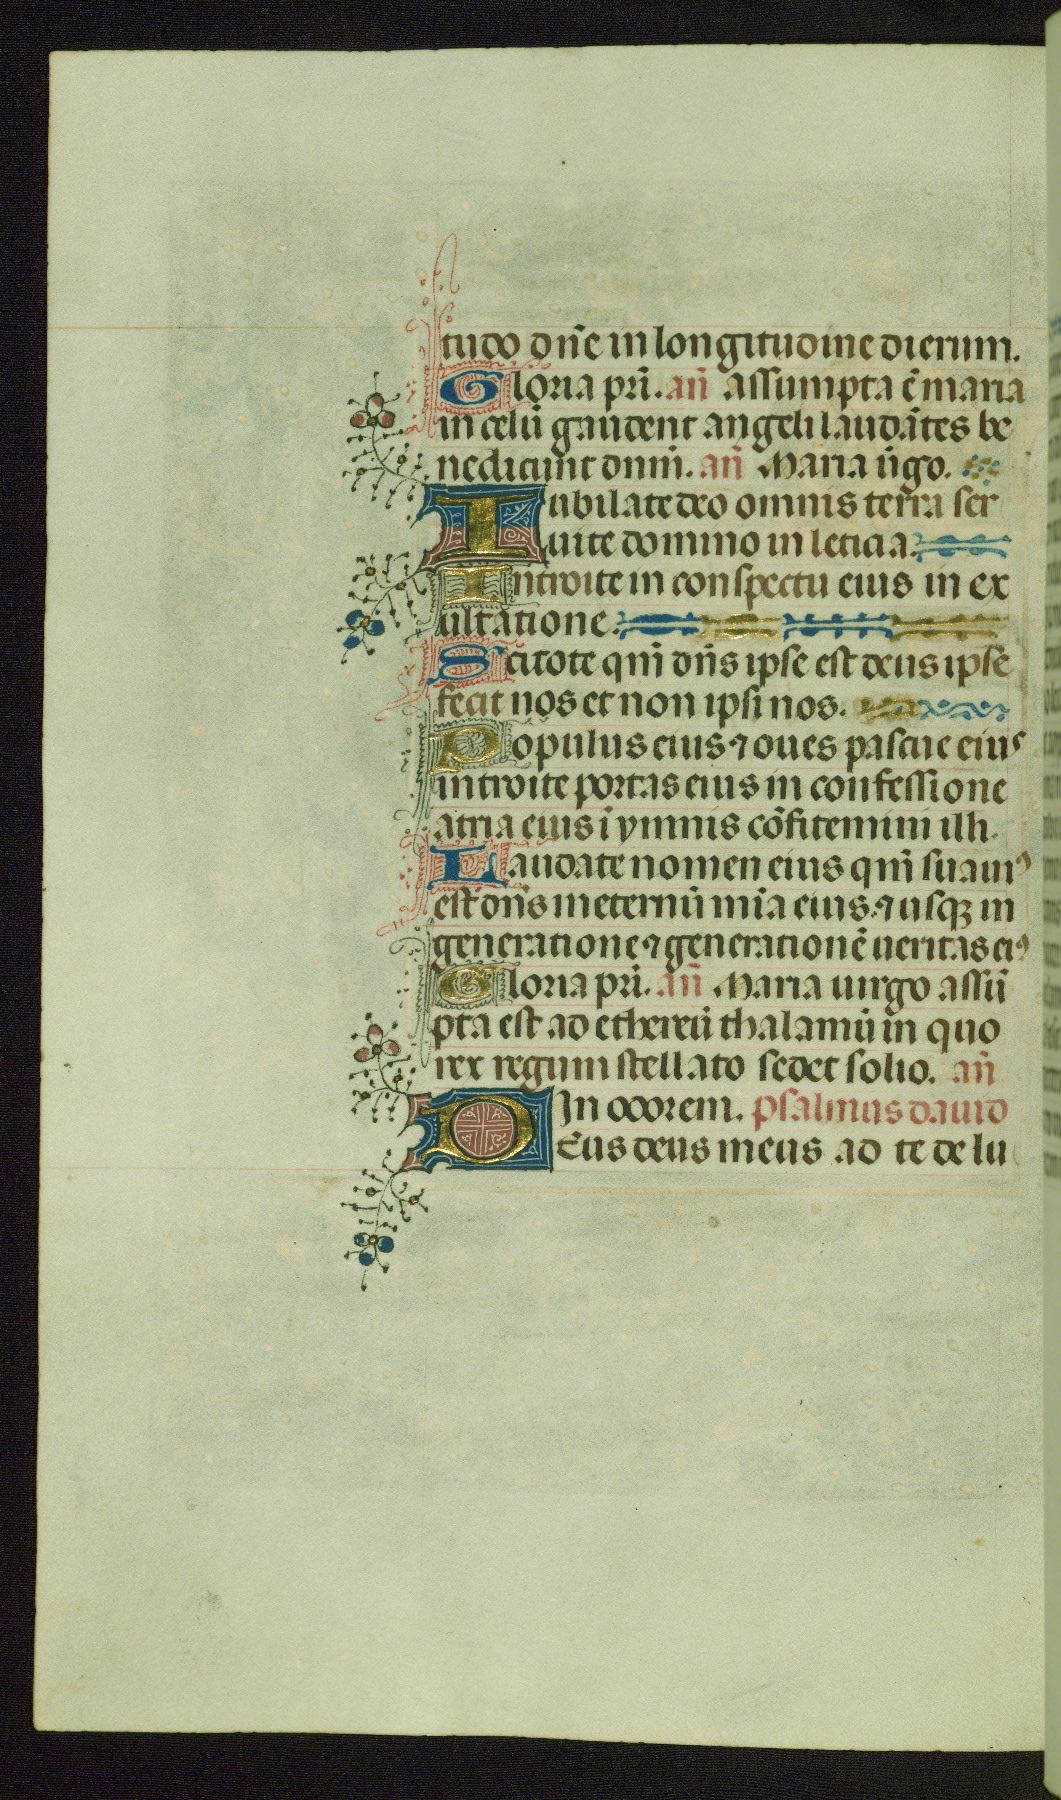 tudo dn̄e in longitudine dierum.
Gloria pr̄i. an̄ assumpta ē maria
in celū gaudent angeli laudātes be
nedicunt dnm̄. an̄ Maria ūgo.
Iubilate deo omnis terra ser
uite domino in leticia.
Introite in conspectu eius in ex
ultatione.
Scitote qm̄ dn̄s ipse est deus ipse
fecit nos et non ipsi nos.
Populus eius ⁊ oues pascue eius
introite portas eius in confessione
atria eius ī ymnis cōfitemini illi.
Laudate nomen eius qm̄ suauiꝰ
est dn̄s in eternū mīa eius ⁊ usqꝫ in
generatione ⁊ generationē ueritas eiꝰ
Gloria pr̄i. an̄ Maria uirgo assū
pta est ad ethereū thalamū in quo
rex regum stellato sedet solio. an̄
In odorem. psalmus dauid
Deus deus meus ad te de lu